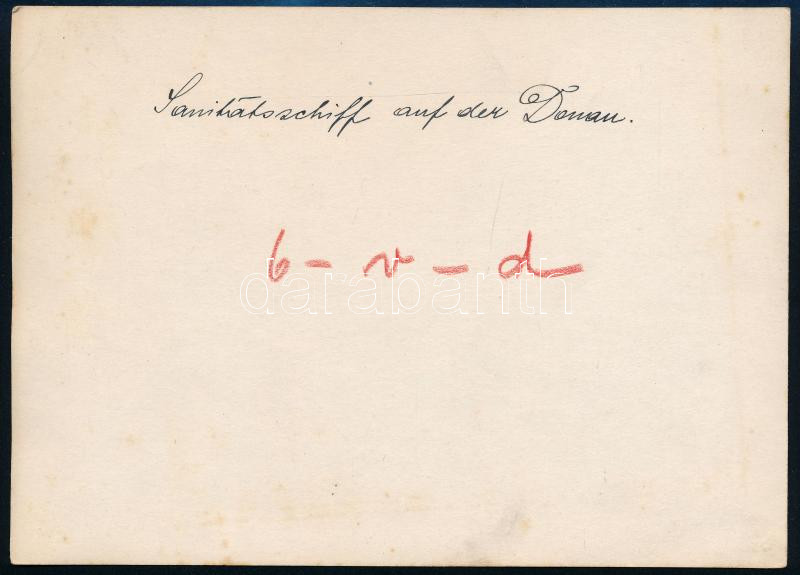 Sanitätsschiff auf der Donau.
6 - v - d
darabanth